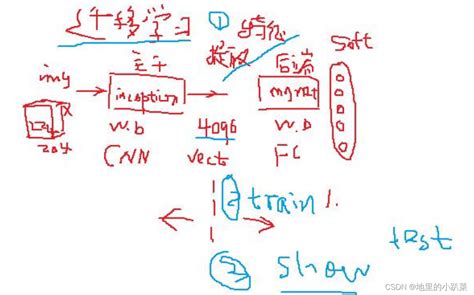 迁移学习 ① 特征
提取
主干 后端 soft
img inception mynet
224
224 w.b 4096 w.b
CNN vects FC
② train 1.
test
③ show
CSDN @地里的小趴菜